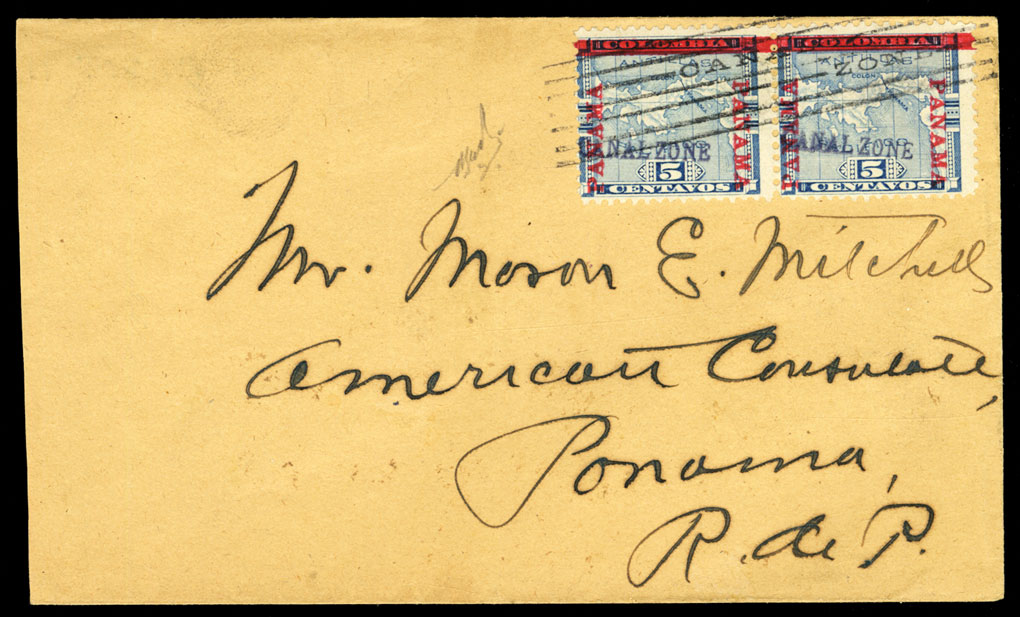 COLOMBIA COLOMBIA
CANAL ZONE
COLON
PANAMA PANAMA PANAMA PANAMA
CANAL ZONE CANAL ZONE
5 5
CENTAVOS CENTAVOS
Mr. Mason E. Mitchell
American Consulate,
Panama,
R. de P.